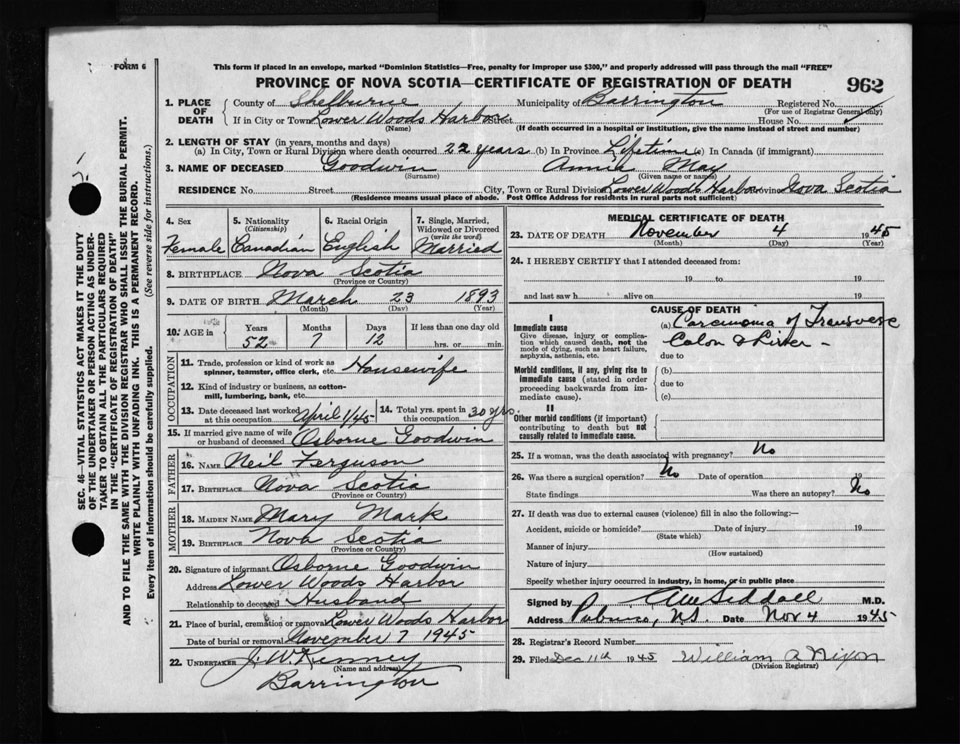 FORM 6
This form if placed in an envelope, marked "Dominion Statistics—Free, penalty for improper use $300," and properly addressed will pass through the mail "FREE"
PROVINCE OF NOVA SCOTIA—CERTIFICATE OF REGISTRATION OF DEATH 962
1. PLACE OF DEATH County of Shelburne Municipality of Barrington Registered No.
(For use of Registrar General only)
If in City or Town Lower Woods Harbor Street House No.
(Name) (If death occurred in a hospital or institution, give the name instead of street and number)
2. LENGTH OF STAY (in years, months and days)
(a) In City, Town or Rural Division where death occurred 22 years (b) In Province Lifetime (c) In Canada (if immigrant)
3. NAME OF DECEASED Goodwin Annie May
(Surname) (Given name or names)
RESIDENCE No. Street City, Town or Rural Division Lower Woods Harbor Province Nova Scotia
(Residence means usual place of abode. Post Office Address for residents in rural parts not sufficient)
4. Sex Female
5. Nationality (Citizenship) Canadian
6. Racial Origin English
7. Single, Married, Widowed or Divorced (write the word) Married
8. BIRTHPLACE Nova Scotia
(Province or Country)
9. DATE OF BIRTH March 23 1893
(Month) (Day) (Year)
10. AGE in Years Months Days If less than one day old
52 7 12 hrs. or min.
OCCUPATION
11. Trade, profession or kind of work as spinner, teamster, office clerk, etc. Housewife
12. Kind of industry or business, as cotton-mill, lumbering, bank, etc.
13. Date deceased last worked at this occupation April 1/45
14. Total yrs. spent in this occupation 30 yrs.
15. If married give name of wife or husband of deceased Osborne Goodwin
FATHER
16. NAME Neil Ferguson
17. BIRTHPLACE Nova Scotia
(Province or Country)
MOTHER
18. MAIDEN NAME Mary Mark
19. BIRTHPLACE Nova Scotia
(Province or Country)
20. Signature of informant Osborne Goodwin
Address Lower Woods Harbor
Relationship to deceased Husband
21. Place of burial, cremation or removal Lower Woods Harbor
Date of burial or removal November 7 1945
22. UNDERTAKER J. W. Kenney
(Name and address)
Barrington
MEDICAL CERTIFICATE OF DEATH
23. DATE OF DEATH November 4 1945
(Month) (Day) (Year)
24. I HEREBY CERTIFY that I attended deceased from:
19 to 19
and last saw h alive on 19
CAUSE OF DEATH
I
Immediate cause
Give disease, injury or complication which caused death, not the mode of dying, such as heart failure, asphyxia, asthenia, etc.
(a) Carcinoma of Transverse
Colon & Liver -
due to
Morbid conditions, if any, giving rise to immediate cause (stated in order proceeding backwards from immediate cause).
(b)
due to
(c)
II
Other morbid conditions (if important) contributing to death but not causally related to immediate cause.
25. If a woman, was the death associated with pregnancy? No
26. Was there a surgical operation? No Date of operation 19
State findings Was there an autopsy? No
27. If death was due to external causes (violence) fill in also the following:—
Accident, suicide or homicide? Date of injury 19
(State which)
Manner of injury
(How sustained)
Nature of injury
Specify whether injury occurred in industry, in home, or in public place
Signed by M.D.
Address Pubnico, N.S. Date Nov 4 1945
28. Registrar's Record Number
29. Filed Dec 11th 1945 William A Nixon
(Division Registrar)
SEC. 46—VITAL STATISTICS ACT MAKES IT THE DUTY
OF THE UNDERTAKER OR PERSON ACTING AS UNDER-
TAKER TO OBTAIN ALL THE PARTICULARS REQUIRED
IN THE "CERTIFICATE OF REGISTRATION OF DEATH"
AND TO FILE THE SAME WITH THE DIVISION REGISTRAR WHO SHALL ISSUE THE BURIAL PERMIT.
WRITE PLAINLY WITH UNFADING INK. THIS IS A PERMANENT RECORD.
Every item of information should be carefully supplied. (See reverse side for instructions.)